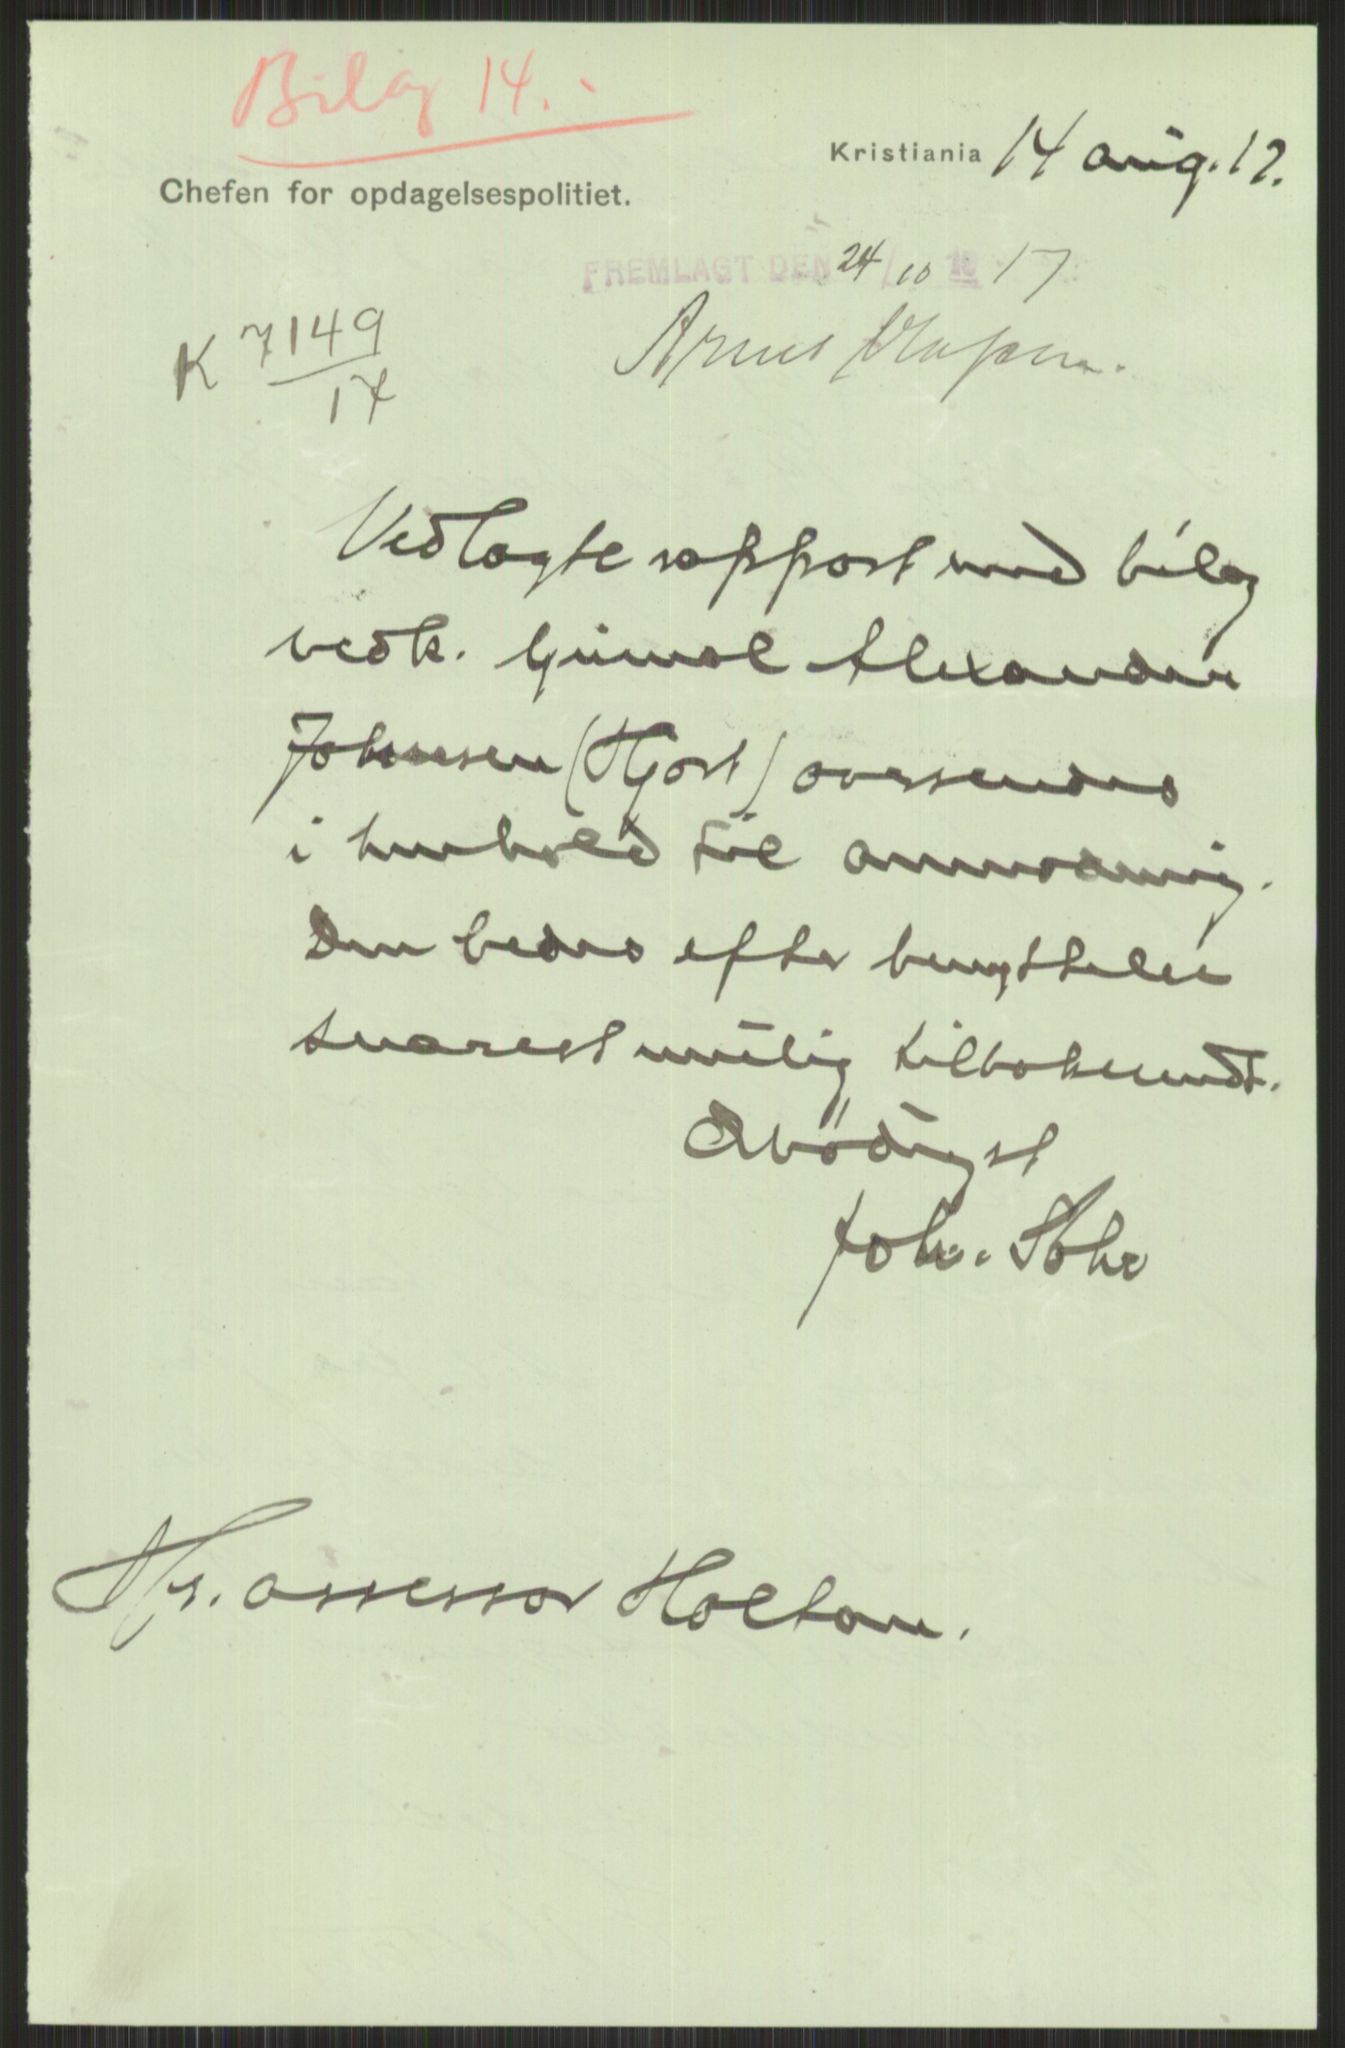 Bilag 14.-
Kristiania 14 aug. 17.
Chefen for opdagelsespolitiet.
FREMLAGT DEN 24/10 17
K 7149/17
Vedlagte rapport med bilag
vedk. Gunval Alexander
Johnsen (Hjort) oversendes
i henhold til anmodning.
Den bedes efter benyttelse
snarest mulig tilbakesendt.
Ærbødigst
Joh. Söhr
Hr. assessor Holtan.